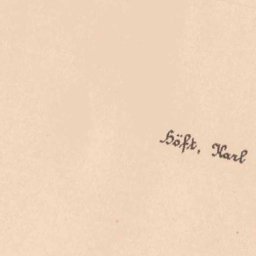 Höft, Karl